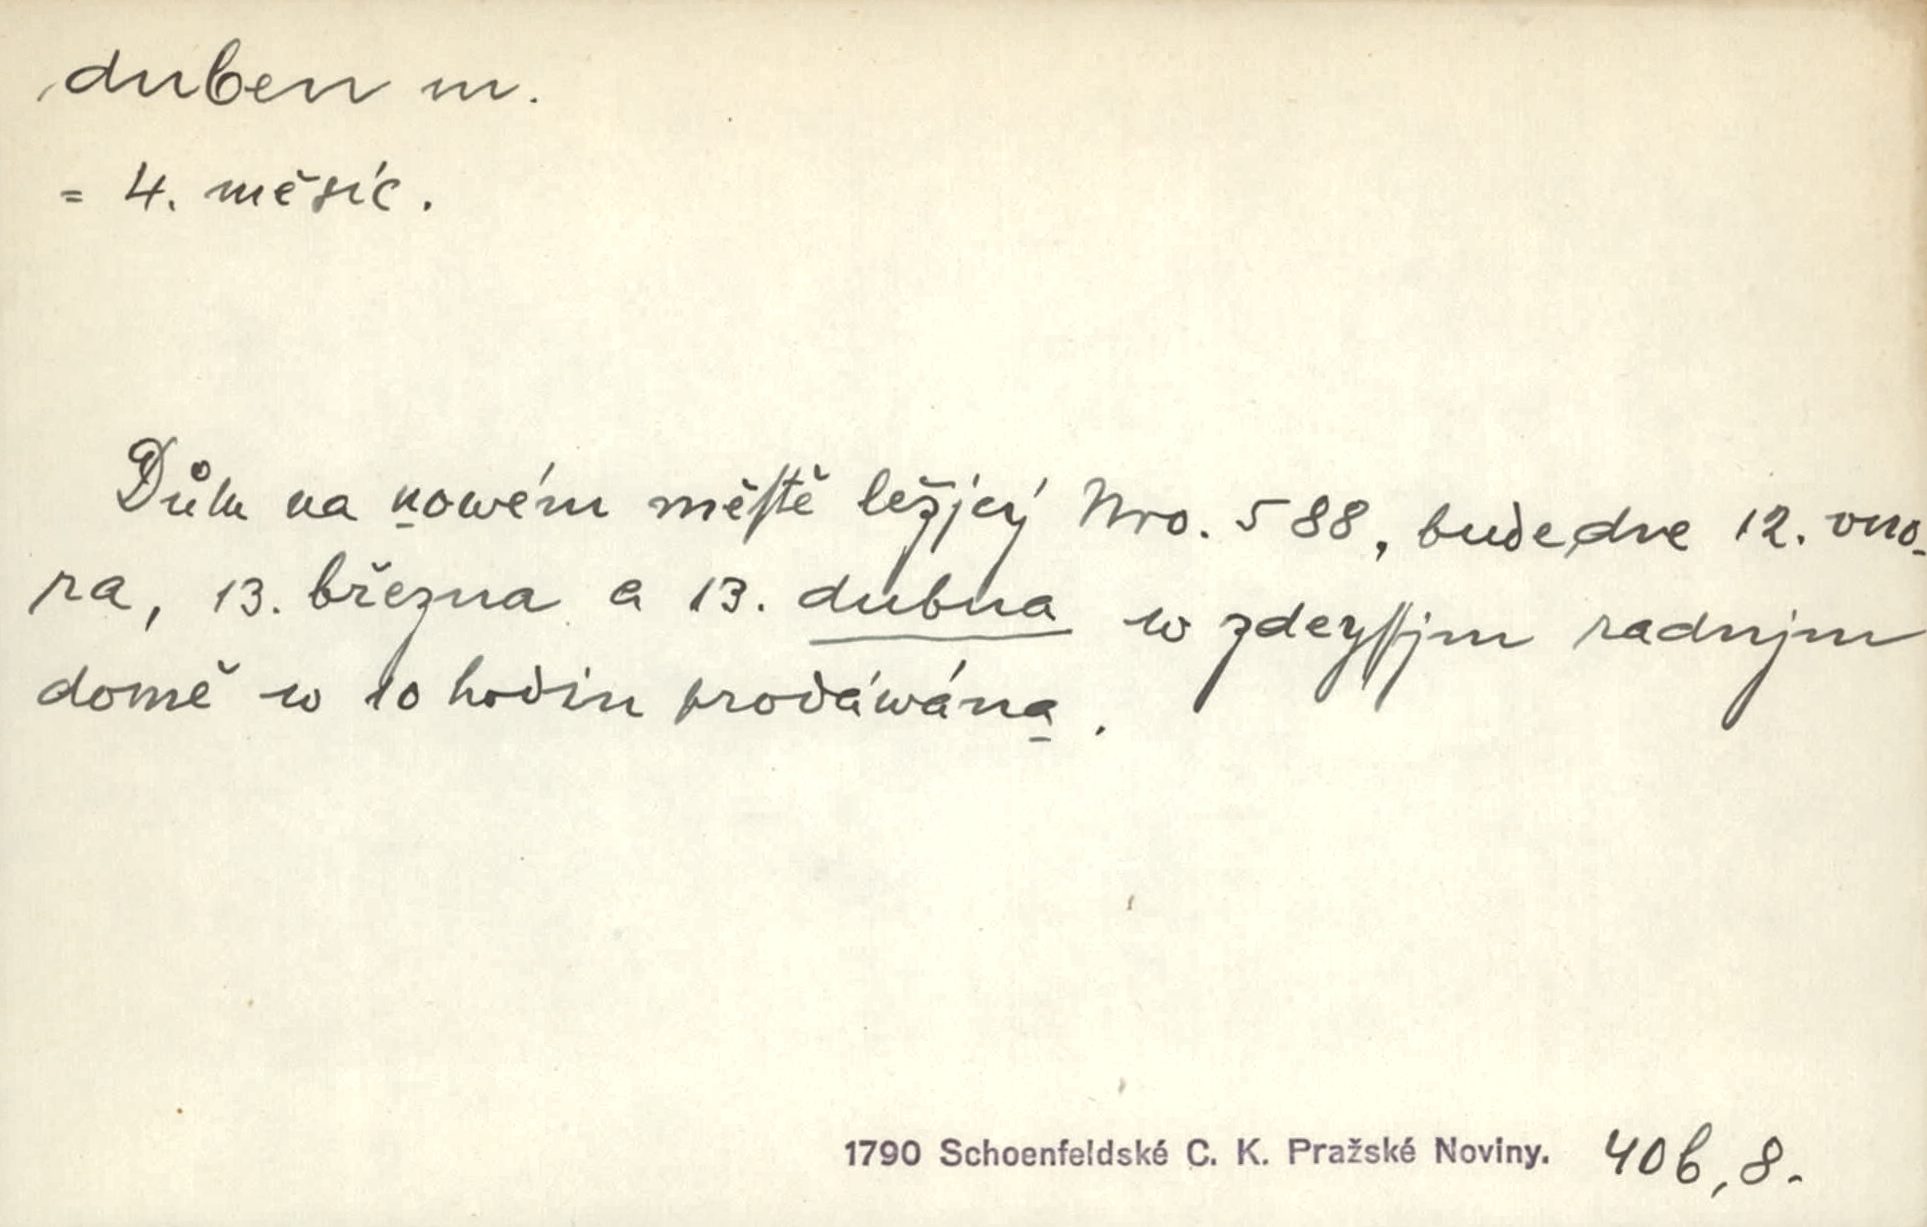 duben m.
= 4. měsíc.
Důlu na nowém měſtě ležjcý Nro. 588, bude dne 12. vno-
ra, 13. března a 13. dubna w zdeyſſjm radnjm
domě w 10 hodin prodáwána.
1790 Schoenfeldské C. K. Pražské Noviny. 40b, 8.